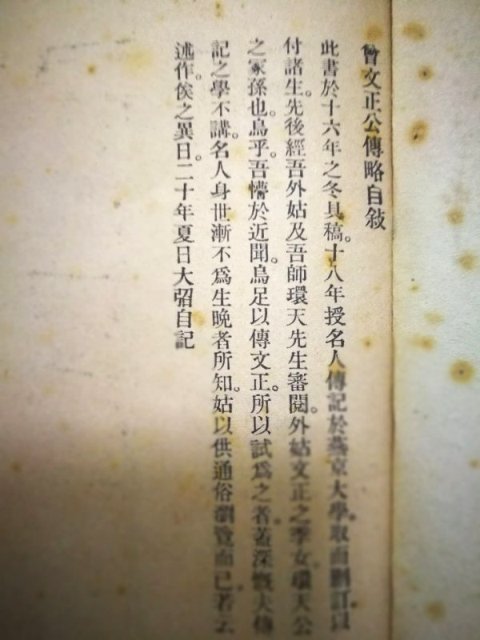 曾文正公傳略自敍
此書於十六年之冬具稿。十八年授名人傳記於燕京大學。取而刪訂以
付諸生。先後經吾外姑及吾師環天先生審閱。外姑文正之季女。環天公
之冢孫也。烏乎。吾懵於近聞。烏足以傳文正。所以試爲之者。蓋深慨夫傳
記之學不講。名人身世漸不爲生晚者所知。姑以供通俗瀏覽而已。若云
述作。俟之異日。二十年夏日大弨自記